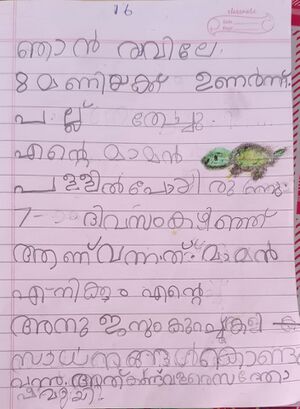 16
classmate
Date
Page
ഞാൻ രവിലേ.
8 മണിയക്ക് ഉണർന്ന്.
പ. ല്ല് തേച്ചു.
എന്റെ മാമൻ
പള്ളിൽപോയിരുന്നു.
7- ദിവസംകഴിഞ്ഞ്
ആണ് വന്നത്. മാമൻ
എ-നിക്കും എന്റെ
അനുജനുംകുറച്ചുകളി
സാധനങ്ങൾകൊണ്ട
വന്നു. അത്കണ്വളരെസന്തോ
ഷവുമായി.